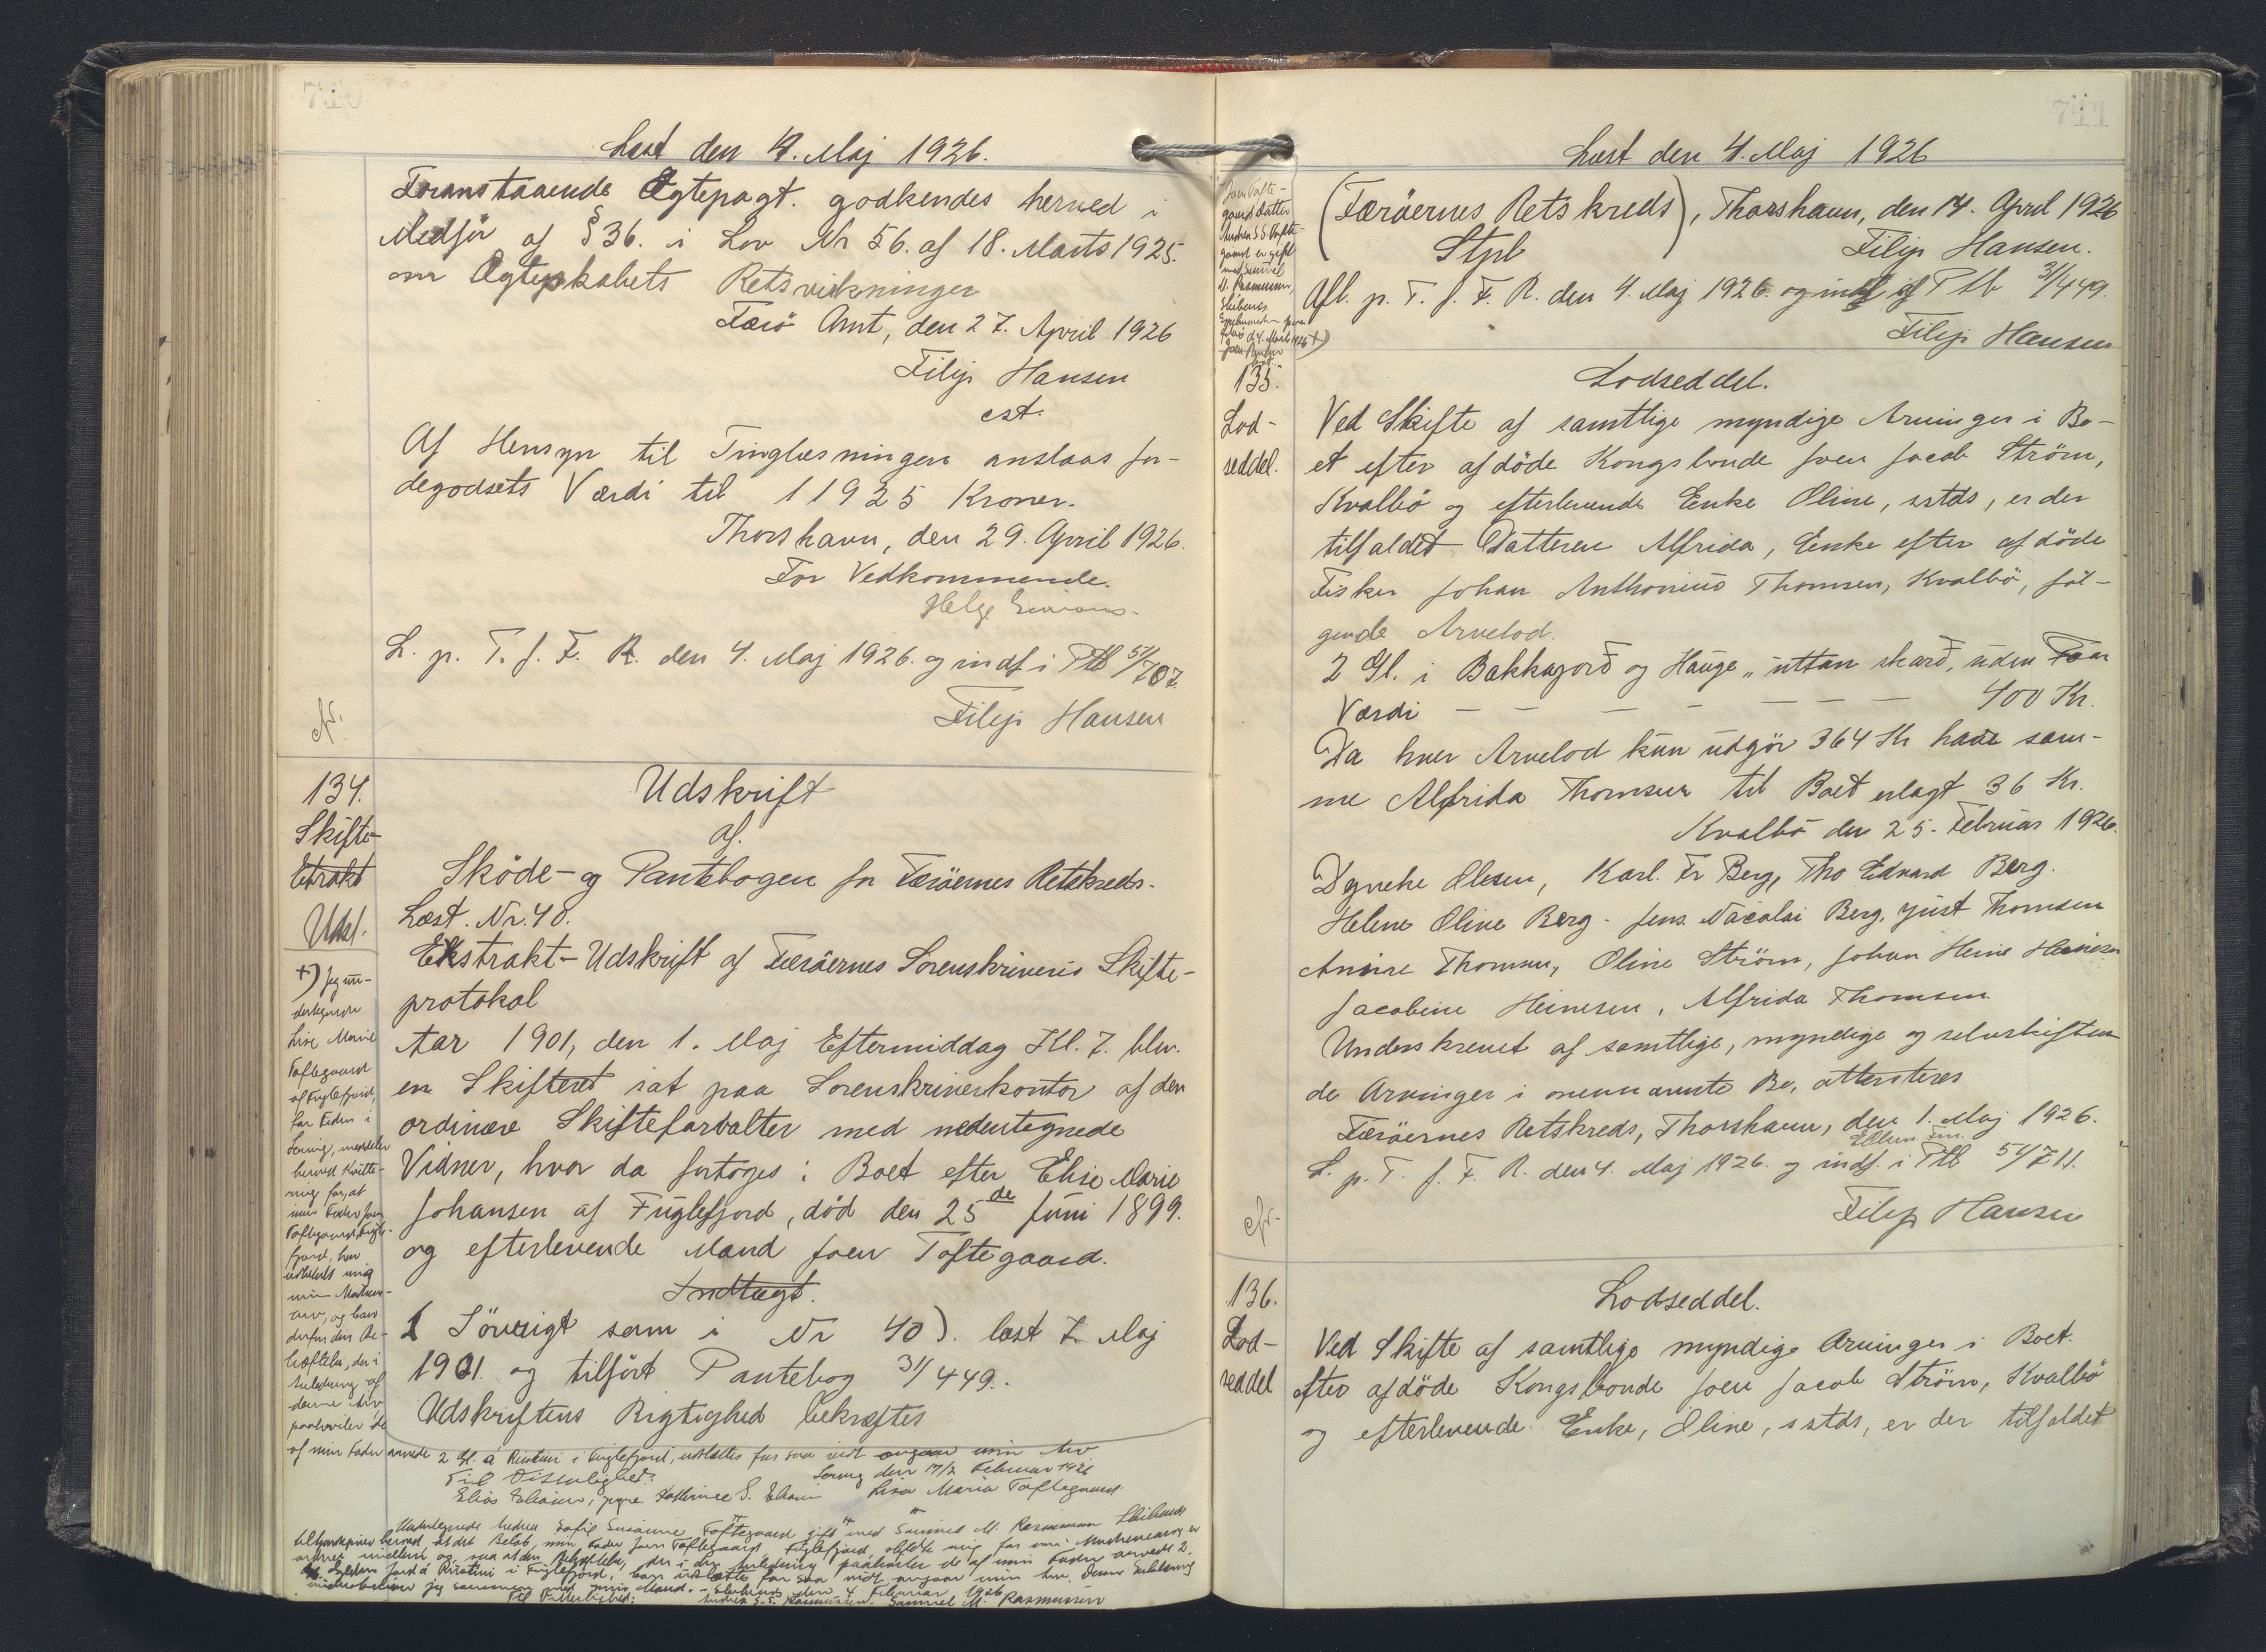 Læst den 4. Maj 1926.
Foranstaaende Ægtepagt. godkendes herved i
Medfør af § 36. i Lov Nr 56. af 18. Marts 1925.
om Ægteskabets Retsvirkninger
Færø Amt, den 27. April 1926
Filip Hansen
cst.
Af Hensyn til Tinglæsningen anslaas for-
degodsets Værdi til 11925 Kroner.
Thorshavn, den 29. April 1926.
For Vedkommende.
Helge
L. p. T. f. F. R. den 4. Maj 1926. og indf i Ptb 51/707.
Filip Hansen
134.
Skifte-
Extrakt
Udsl.
Udskrift
af.
Sköde- og Pantebogen for Færöernes Retskreds.
Læst. Nr. 40.
Ekstrakt-Udskrift af Færöernes Sorenskriveris Skifte-
protokol
Aar 1901, den 1. Maj Eftermiddag Kl. 7. blev.
en Skifteret sat paa Sorenskriverkontor af den
ordinære Skifteforvalter med nedentegnede
Vidner, hvor da fortoges: Boet efter Elise Marie
Johansen af Fuglefjord, död den 25de Juni 1899.
og efterlevende Mand Joen Toftegaard.
Indtægt.
( Iövrigt som i Nr 40). læst 7. Maj
1901. og tilfört Pantebog 31/449.
Udskriftens Rigtighed bekræftes
+) Jeg un-
dertegnede
Lise Marie
Toftegaard
af Fuglefjord,
for Tiden i
Sörvig, meddeler
herved Kvitte-
ring for, at
min Fader Joen
Toftegaard, Fugle-
fjord, har
udbetalt mig
min Mødrene-
arv, og kan
derfor den Be-
hæftelse, der i
Anledning af
denne Arv
paahviler de
af min Fader arvede 2 Gl. á Ristini i Fuglefjord, udslettes for saa vidt angaar min Arv
Sörvig den 17/2 Februar 1926
Til Vitterlighed:
Lisa Maria Toftegaard.
Undertegnede Andrea Sofie Susanne Toftegaard gift med Samuel M. Rasmussen
tilkendegiver herved, at det Beløb, min Fader Joen Toftegaard, Fuglefjord, skyldte mig for min Mødrenearv er
og saa at den Behæftelse, der i den Anledning paahviler de af min Fader arvede 2.
Gylden Jord á Ristini i Fuglefjord, kan udslettes for saa vidt angaar min Arv. Denne Erklæring
underskriver jeg sammen med min Mand. - den 4 Februar 1926
Til Vitterlighed: Andrea S. S. Rasmussen. Samuel M. Rasmussen
Læst den 4. Maj 1926
(Færöernes Retskreds), Thorshavn, den 14. April 1926
Stpl Filip Hansen.
Afl. p. T. f. F. R. den 4. Maj 1926. og indf. i Ptb 31/449.
Filip Hansen
135.
Lod-
seddel.
Lodseddel.
Ved Skifte af samtlige myndige Arvinger i Bo-
et efter afdöde Kongsbonde Joen Jacob Ström,
Kvalbö og efterlevende Enke Oline, sstds, er der
tilfaldet Datteren Alfrida, Enke efter afdöde
Fisker Johan Anthonius Thomsen, Kvalbö, föl-
gende Arvelod.
2 Gl. i Bakkagorð og Hauge „uttan skarð, uden Faar
Værdi — — — — — — — 400 Kr.
Da hver Arvelod kun udgör 364 Kr have sam-
me Alfrida Thomsen til Boet erlagt 36 Kr.
Kvalbö den 25. Februar 1926.
Dyneke Olesen, Karl. Fr Berg, Tho Edvard Berg.
Helene Oline Berg. Jens Nicolai Berg, Just Thomsen
Annine Thomsen, Oline Ström, Johan Heine Heinesen
Jacobine Heinesen, Alfrida Thomsen
Underskrevet af samtlige, myndige og selvskiften-
de Arvinger i ovennævnte Bo, attesteres
Færöernes Retskreds, Thorshavn, den 1. Maj 1926.
L. p. T. f. F. R. den 4. Maj 1926. og indf. i Ptb 51/711.
Filip Hansen
136.
Lod-
seddel
Lodseddel.
Ved Skifte af samtlige myndige Arvinger i Boet.
efter afdöde Kongsbonde Joen Jacob Ström, Kvalbö
og efterlevende Enke, Oline, sstds, er der tilfaldet